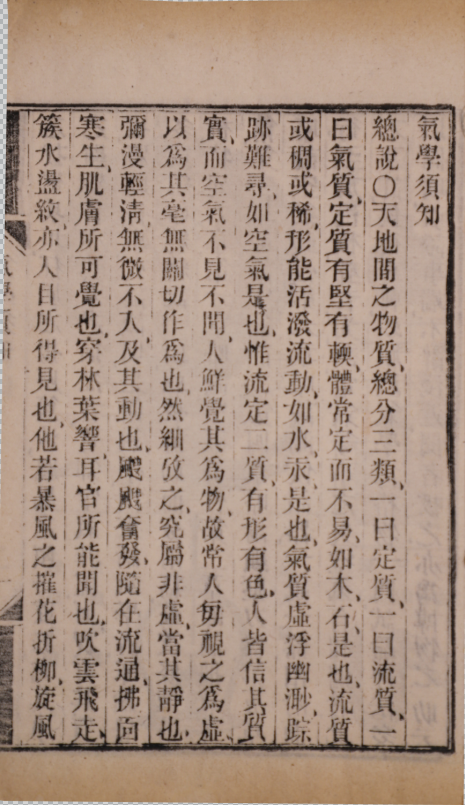 氣學須知
總說〇天地間之物質、總分三類、一曰定質、一曰流質、一
曰氣質、定質有堅有輭、體常定而不易、如木石是也、流質
或稠或稀、形能活潑流動、如水汞是也、氣質虛浮幽渺、踪
跡難尋、如空氣是也、惟流定二質、有形有色、人皆信其質
實、而空氣不見不聞、人鮮覺其爲物、故常人每視之爲虛、
以爲其毫無關切作爲也、然細攷之、究屬非虛、當其靜也、
彌漫輕淸、無微不入、及其動也、颼颼奮發、隨在流通、拂面
寒生、肌膚所可覺也、穿林葉響、耳官所能聞也、吹雲飛走、
簇水盪紋、亦人目所得見也、他若暴風之摧花折柳、旋風